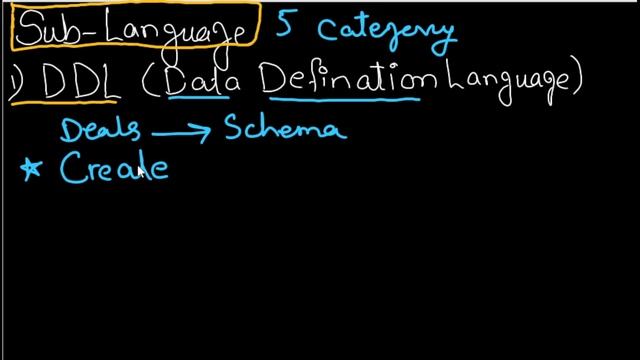 Sub-Language 5 Category
1) DDL (Data Defination Language)
Deals → Schema
* Create